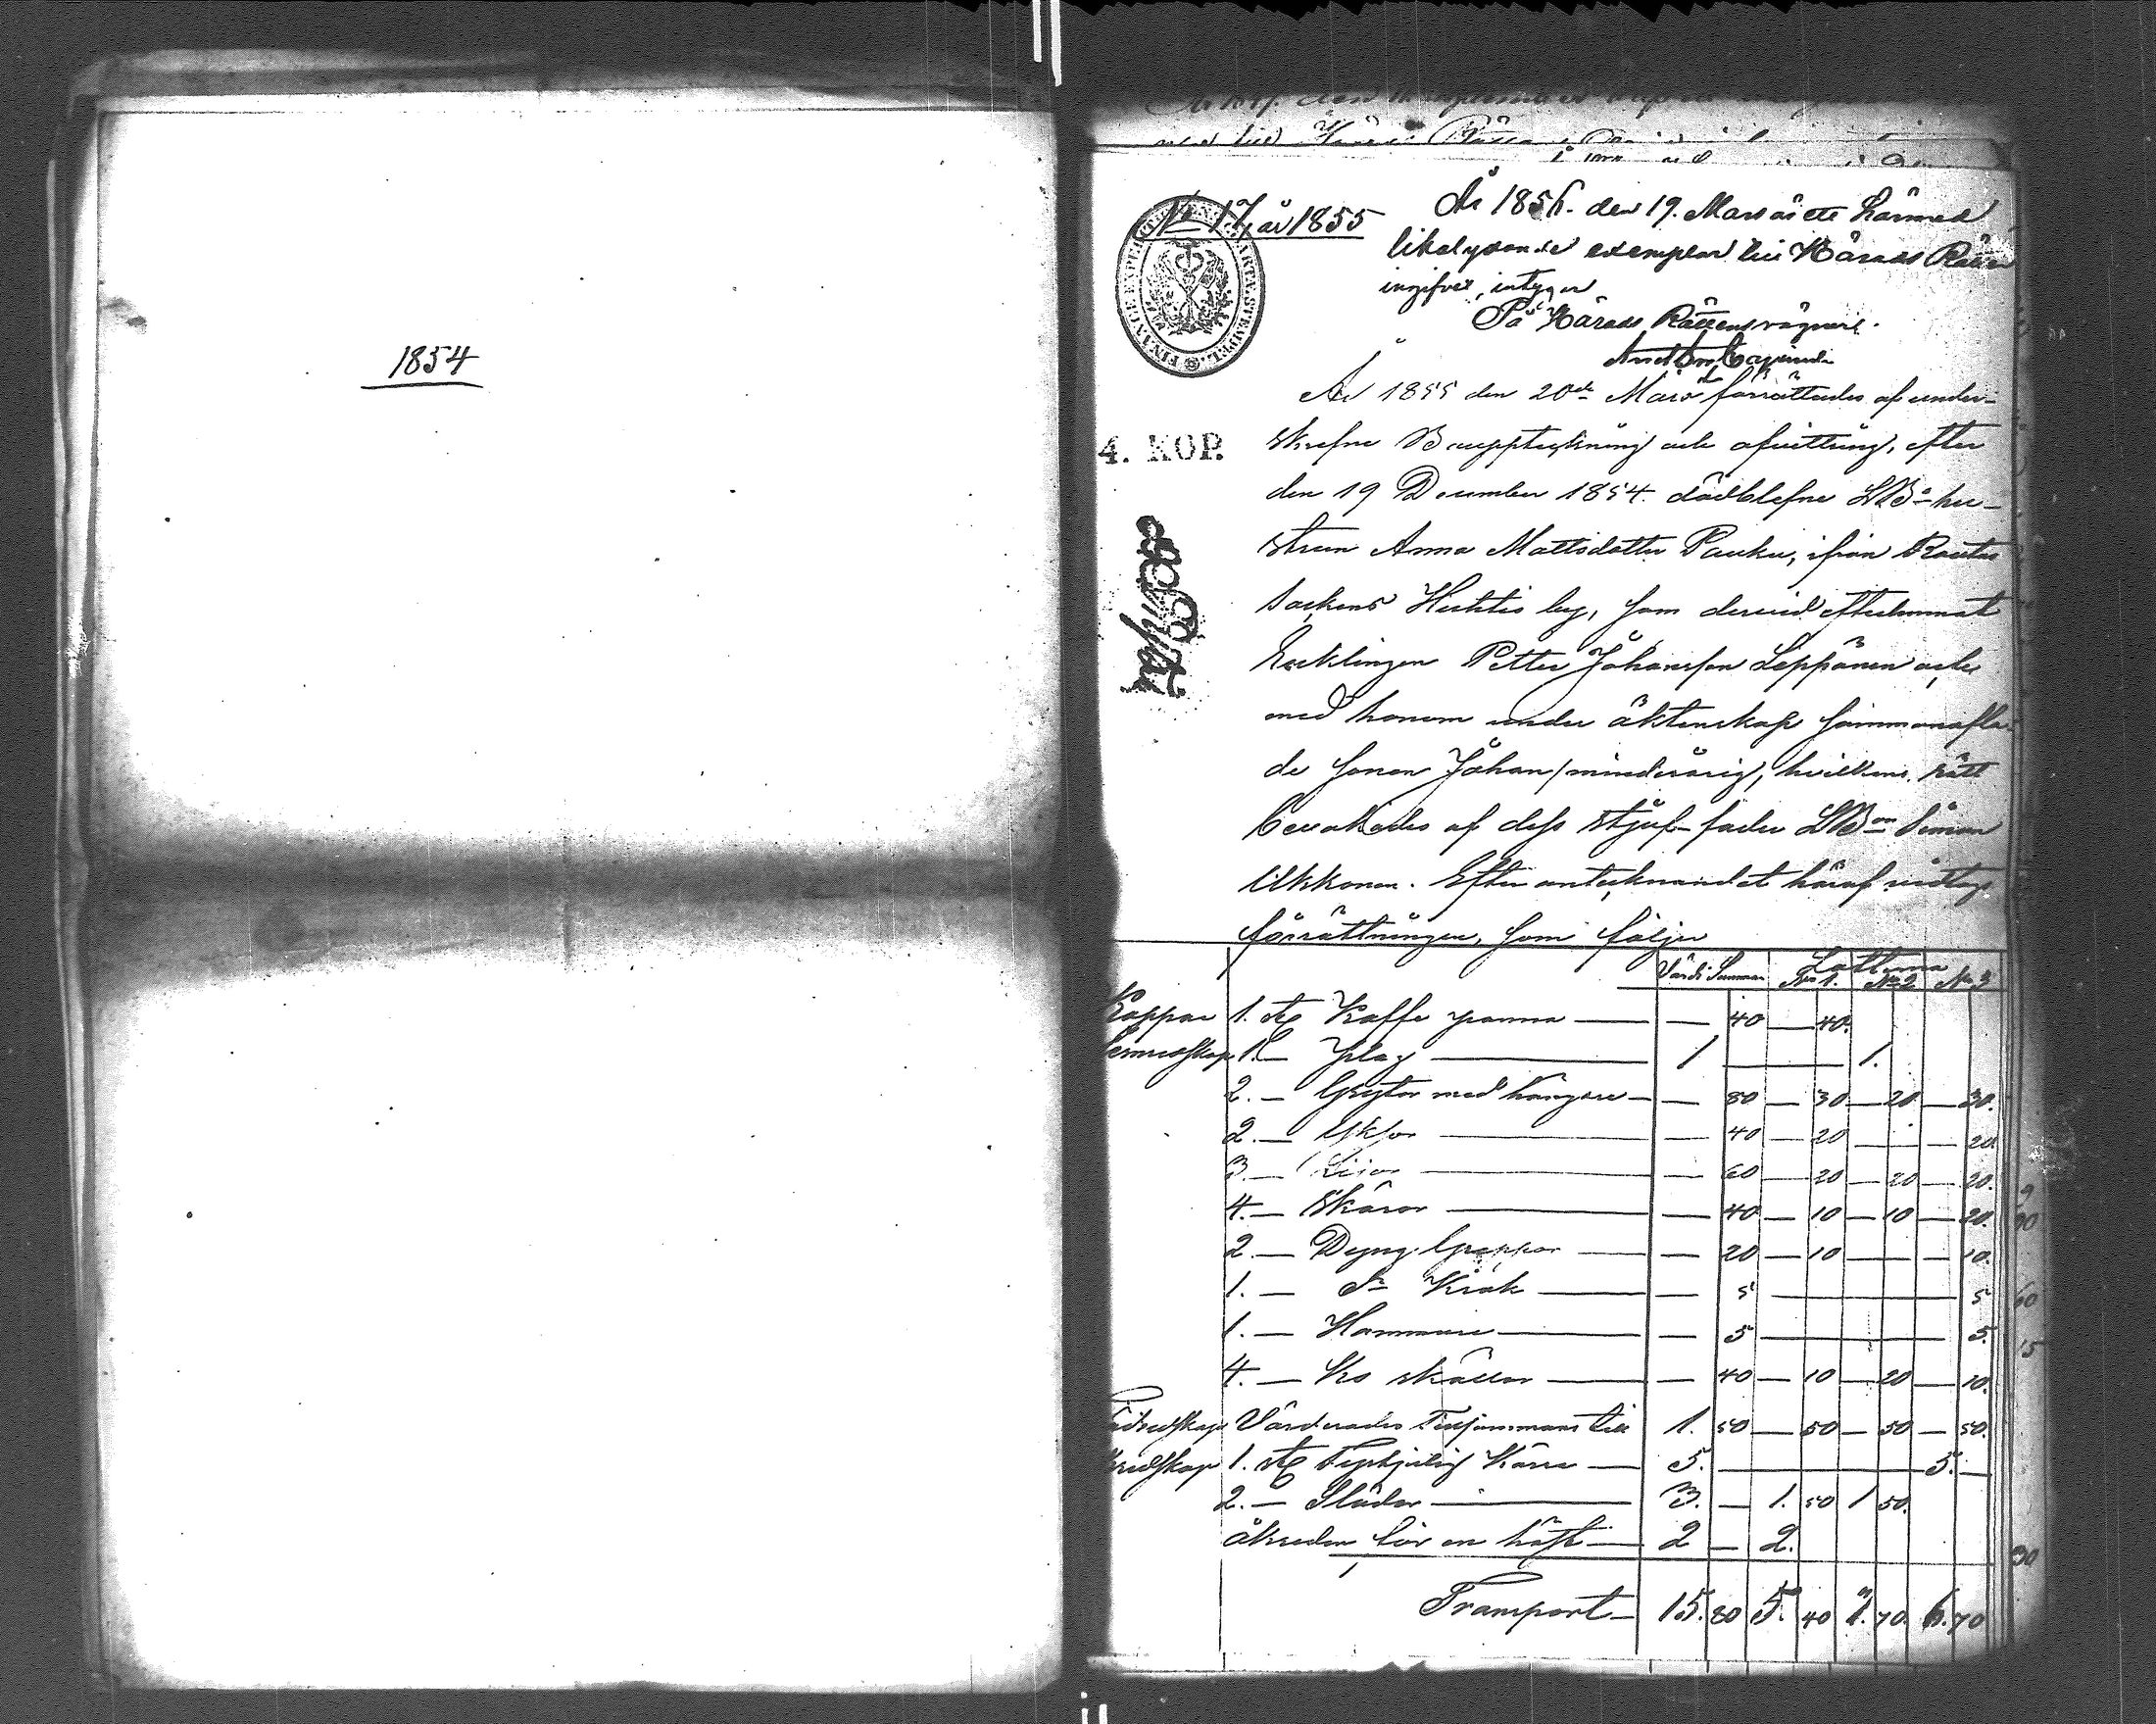 1854
No 17, år 1855
År 1856. den 19. Mars är ett härmed
likalydande exemplar till Härads Rätten
ingifvet, intygar
På Härads Rättens vägnar.
4. KOP.
År 1855 den 20de Mars förrättades af under-
skrefne Bouppteckning och afvittring, efter
den 19 December 1854 dödblefne LBo-hu-
strun Anna Mattsdotter Pauku, ifrån Rautus
Sockens Huhtis by, som derwid efterlemnat
Enklingen Petter Johansson Leppänen och
med honom under äktenskap sammanafla-
de sonen Johan/minderårig, hvilkens rätt
bevakades af dess stjuf-fader LBon Simon
Ukkonen. Efter antecknandet häraf vidtog
förrättningen, som följer
Värde Summan Lotterna
No 1. No 2 No 3
Koppar 1. st Kaffe panna — — 40 — 40.
1. — 1 — 1.
2. — Grytor med hängare — — 80 — 30 — 20 — 30.
2. — Yxor — — 40 — 20 — — 20
3. — Liior — — 60 — 20 — 20 — 20.
4. — Skäror — — 40 — 10 — 10 — 20.
2. — Dyng Greppar — — 20 — 10 — — 10.
1. — Do Krok — — 5 — 5
1. — Hammare — — 5 — 5.
4. — Ko skällor — — 40 — 10 — 20 — 10.
Värderades Tillsammans till 1. 50 — 50 — 50 — 50.
1. st Kärra — 5. — 5. —
2. — Slädor — 3. — 1. 50 1 50.
åkreden för en häst — 2 — 2.
Transport — 15. 80 5. 40 70. 6. 70